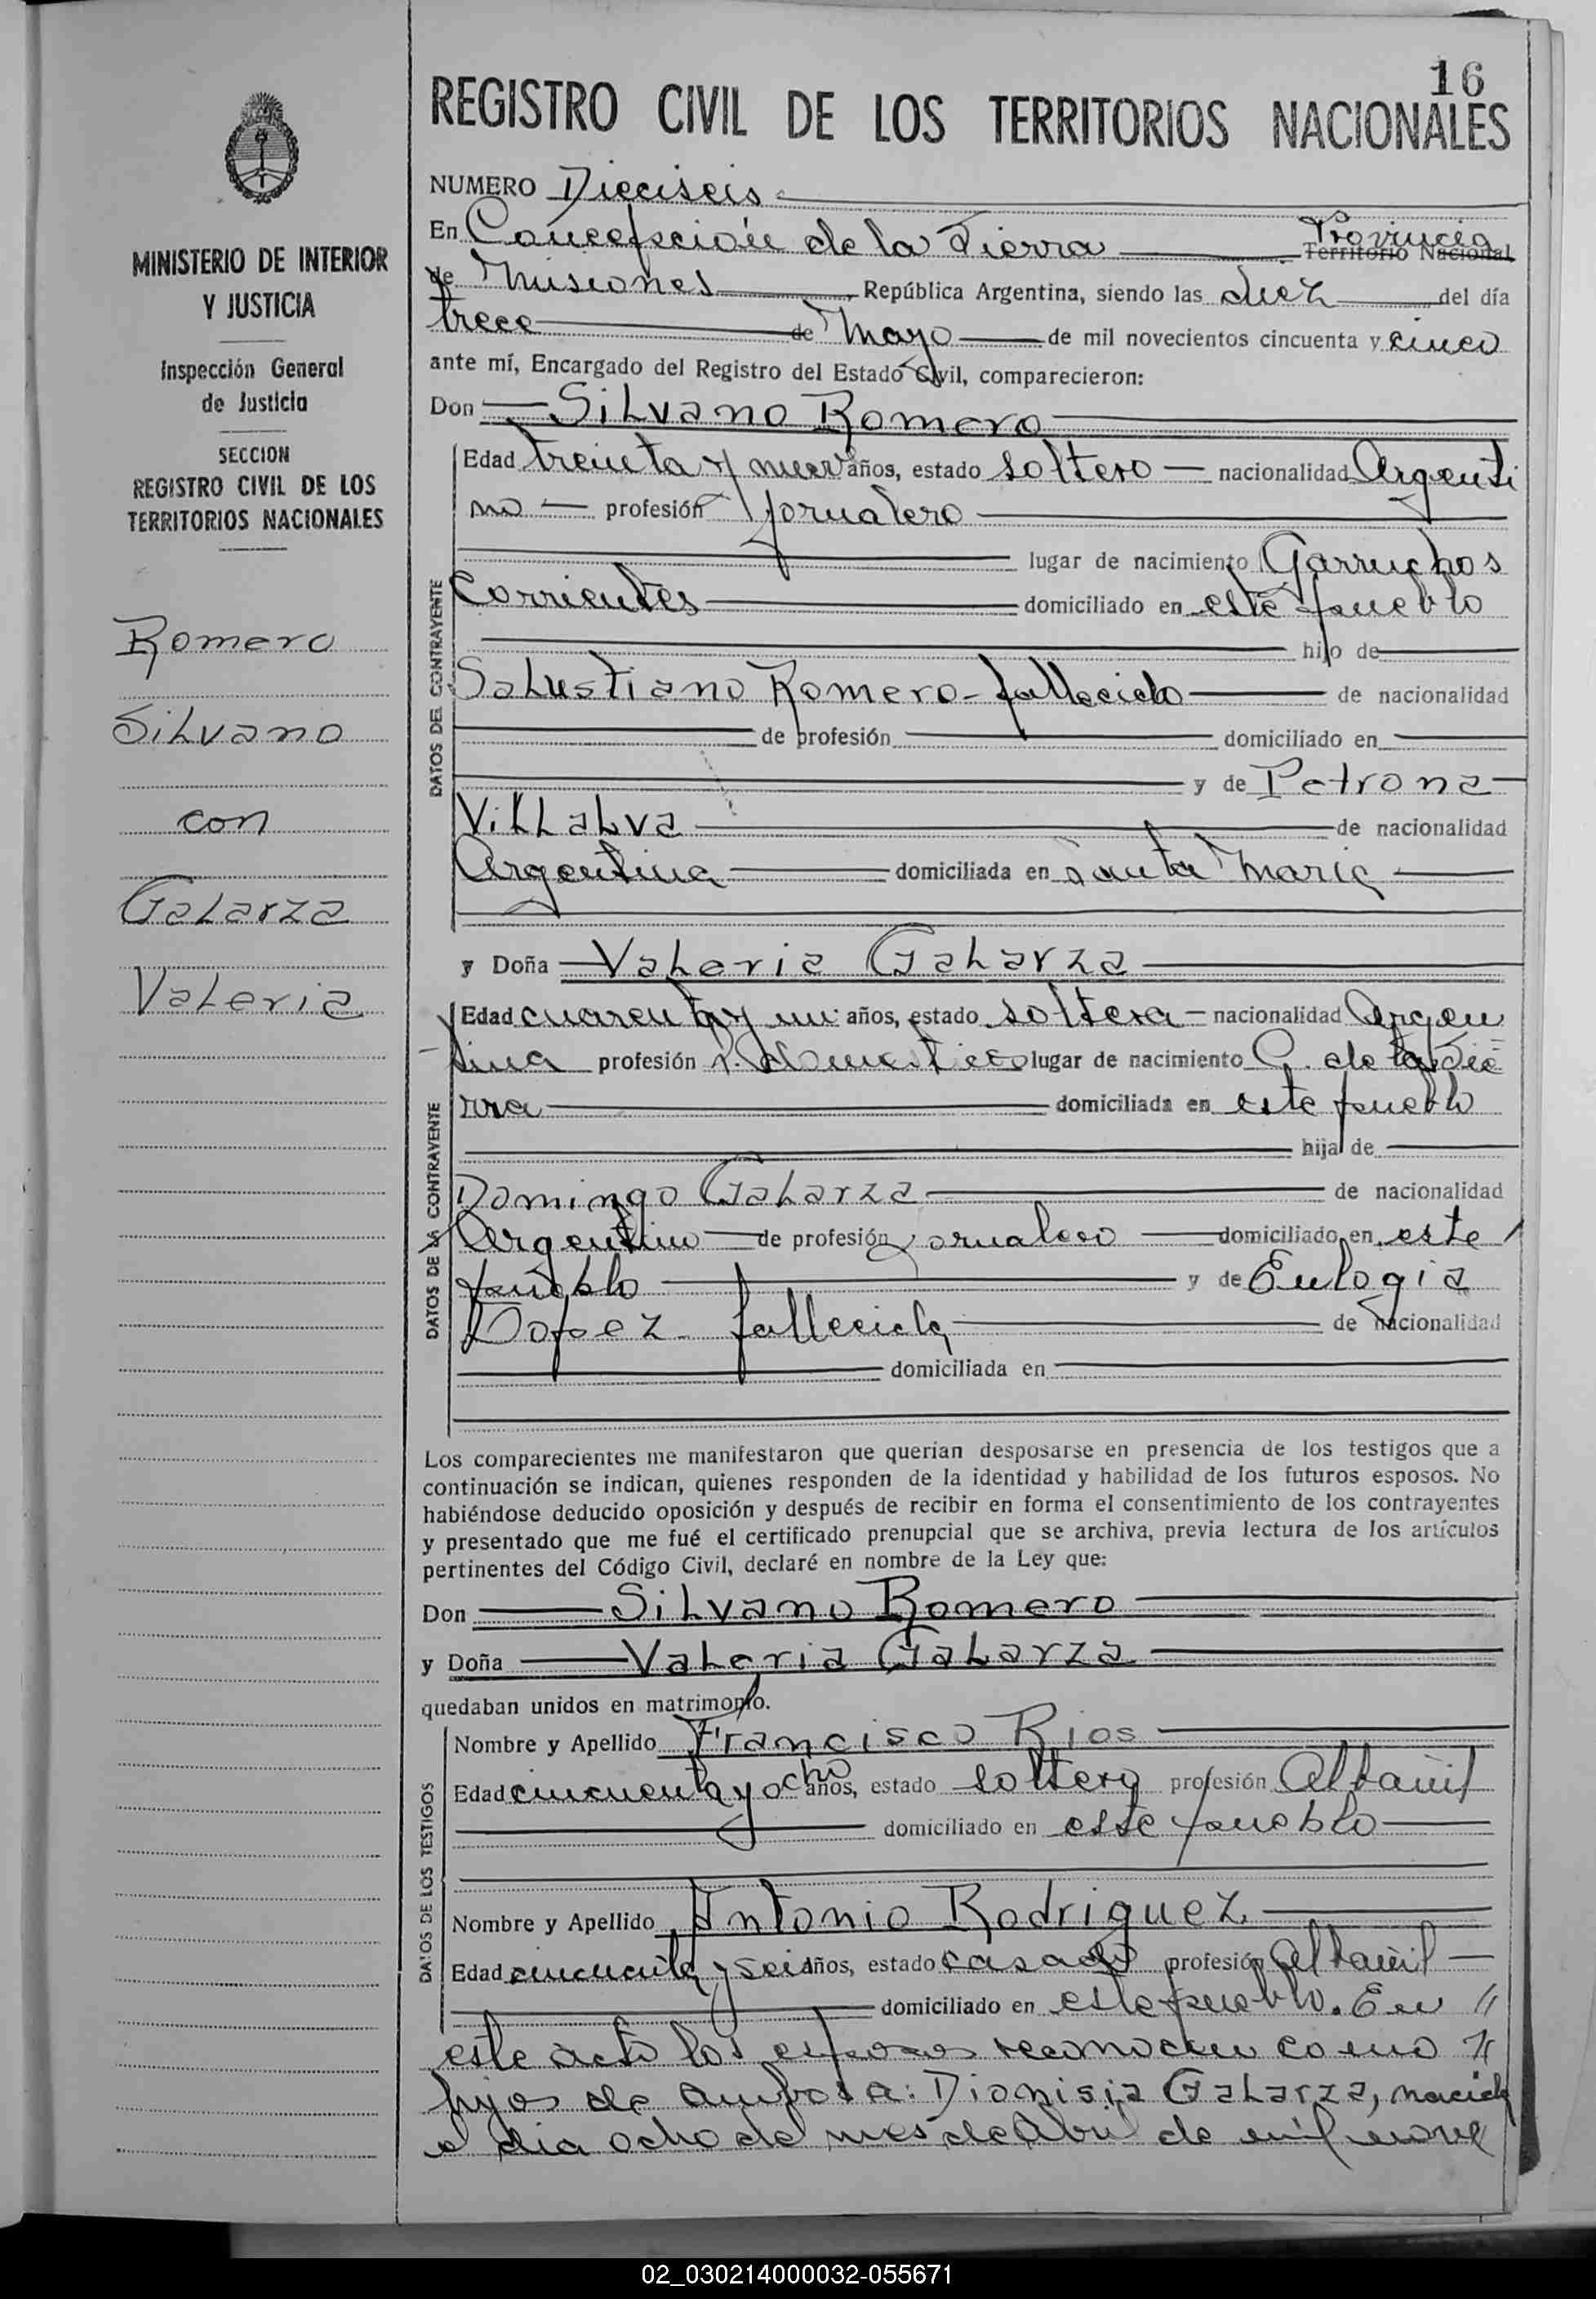 16
REGISTRO CIVIL DE LOS TERRITORIOS NACIONALES
MINISTERIO DE INTERIOR
Y JUSTICIA
Inspección General
de Justicia
SECCION
REGISTRO CIVIL DE LOS
TERRITORIOS NACIONALES
Romero
Silvano
con
Galarza
Valeria
NUMERO Dieciseis
En Concepción de la Sierra Provincia Territorio Nacional
de Misiones República Argentina, siendo las diez del día
trece de Mayo de mil novecientos cincuenta y cinco
ante mí, Encargado del Registro del Estado Civil, comparecieron:
Don Silvano Romero
DATOS DEL CONTRAYENTE
Edad treinta y nueve años, estado soltero nacionalidad Argenti
no profesión jornalero
lugar de nacimiento Garruchos
Corrientes domiciliado en este pueblo
hijo de
Salustiano Romero - fallecido de nacionalidad
de profesión domiciliado en
y de Petrona
Villalva de nacionalidad
Argentina domiciliada en Santa Maria
y Doña Valeria Galarza
DATOS DE LA CONTRAYENTE
Edad cuarenta y un años, estado soltera nacionalidad Argen
tina profesión q. domesticos lugar de nacimiento C. de la Sie
rra domiciliada en este pueblo
hija de
Domingo Galarza de nacionalidad
Argentino de profesión jornalero domiciliado en este
pueblo y de Eulogia
Lopez fallecida de nacionalidad
domiciliada en
Los comparecientes me manifestaron que querian desposarse en presencia de los testigos que a
continuación se indican, quienes responden de la identidad y habilidad de los futuros esposos. No
habiéndose deducido oposición y después de recibir en forma el consentimiento de los contrayentes
y presentado que me fué el certificado prenupcial que se archiva, previa lectura de los artículos
pertinentes del Código Civil, declaré en nombre de la Ley que:
Don Silvano Romero
y Doña Valeria Galarza
quedaban unidos en matrimonio.
DATOS DE LOS TESTIGOS
Nombre y Apellido Francisco Rios
Edad cincuenta y ocho años, estado soltero profesión Albañil
domiciliado en este pueblo
Nombre y Apellido Antonio Rodriguez
Edad cincuenta y seis años, estado casado profesión albañil
domiciliado en este pueblo. En
este acto los esposos reconocen como
hijos de ambos a: Dionisia Galarza, nacida
el dia ocho del mes de Abril de mil nove
02_030214000032-055671